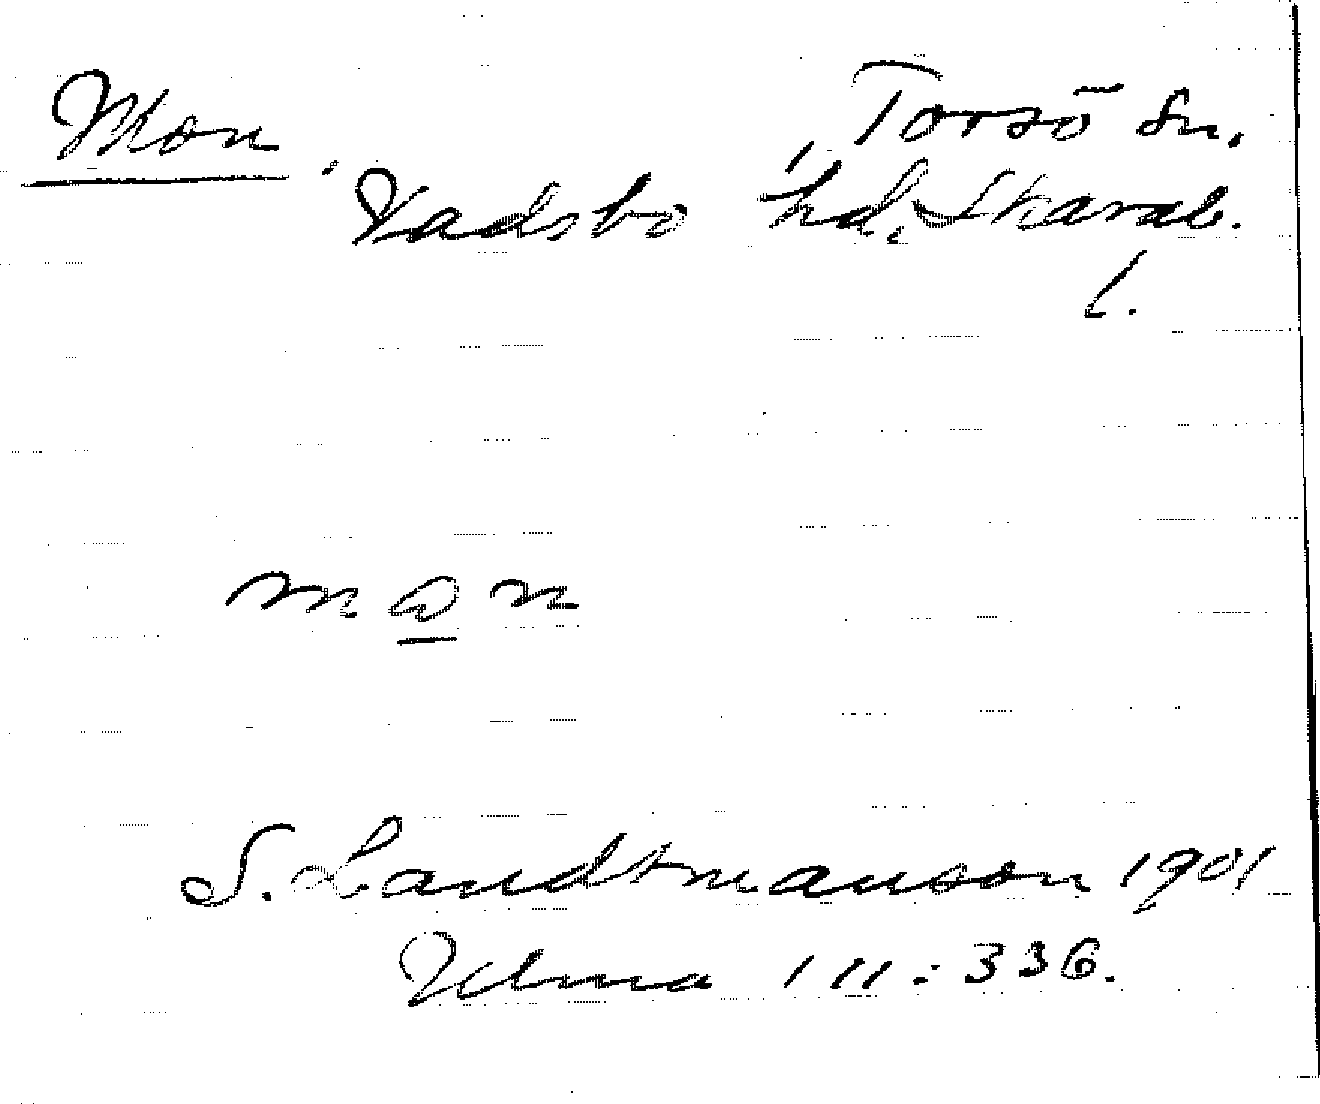 Mon. Torsö Sn.
Vadsbo hd, Skarab.
l.
mωn
S. Landtmanson 1901
Ulma 111:336.